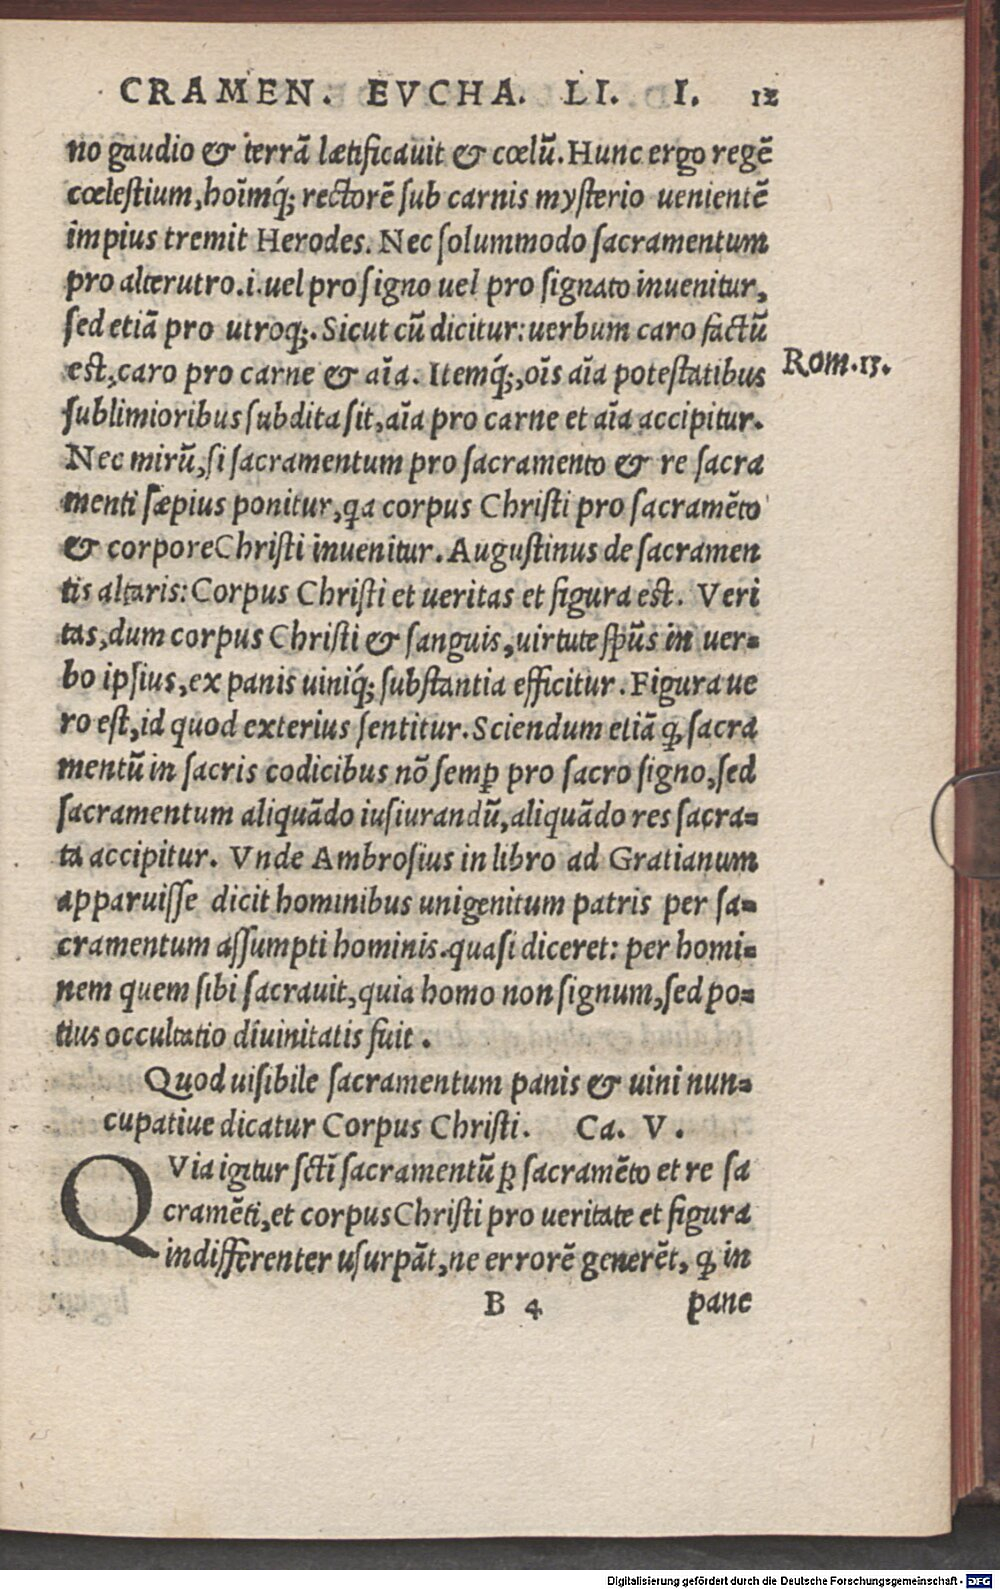 CRAMEN. EVCHA. LI. I. 12
no gaudio & terrã lætificauit & cœlũ. Hunc ergo regẽ
cœlestium, hoĩmq́; rectorẽ sub carnis mysterio uenientẽ
impius tremit Herodes. Nec solummodo sacramentum
pro alterutro.i.uel pro signo uel pro signato inuenitur,
sed etiã pro utroq;. Sicut cũ dicitur: uerbum caro factũ
est, caro pro carne & aĩa. Itemq́;, oĩs aĩa potestatibus
Rom.13.
sublimioribus subdita sit, aĩa pro carne et aĩa accipitur.
Nec mirũ, si sacramentum pro sacramento & re sacra
menti sæpius ponitur, qa corpus Christi pro sacramẽto
& corpore Christi inuenitur. Augustinus de sacramen
tis altaris: Corpus Christi et ueritas et figura est. Veri
tas, dum corpus Christi & sanguis, uirtute sp̃us in uer=
bo ipsius, ex panis uiniq́; substantia efficitur. Figura ue
ro est, id quod exterius sentitur. Sciendum etiã ꝙ sacra
mentũ in sacris codicibus nõ semꝑ pro sacro signo, sed
sacramentum aliquãdo iusiurandũ, aliquãdo res sacra=
ta accipitur. Vnde Ambrosius in libro ad Gratianum
apparuisse dicit hominibus unigenitum patris per sa=
cramentum assumpti hominis. quasi diceret: per homi=
nem quem sibi sacrauit, quia homo non signum, sed po=
tius occultatio diuinitatis fuit.
Quod uisibile sacramentum panis & uini nun=
cupatiue dicatur Corpus Christi. Ca. V.
QVia igitur sctĩ sacramentũ ꝓ sacramẽto et re sa
cramẽti, et corpus Christi pro ueritate et figura
indifferenter usurpãt, ne errorẽ generẽt, ꝙ in
B 4 pane
Digitalisierung gefördert durch die Deutsche Forschungsgemeinschaft - DFG